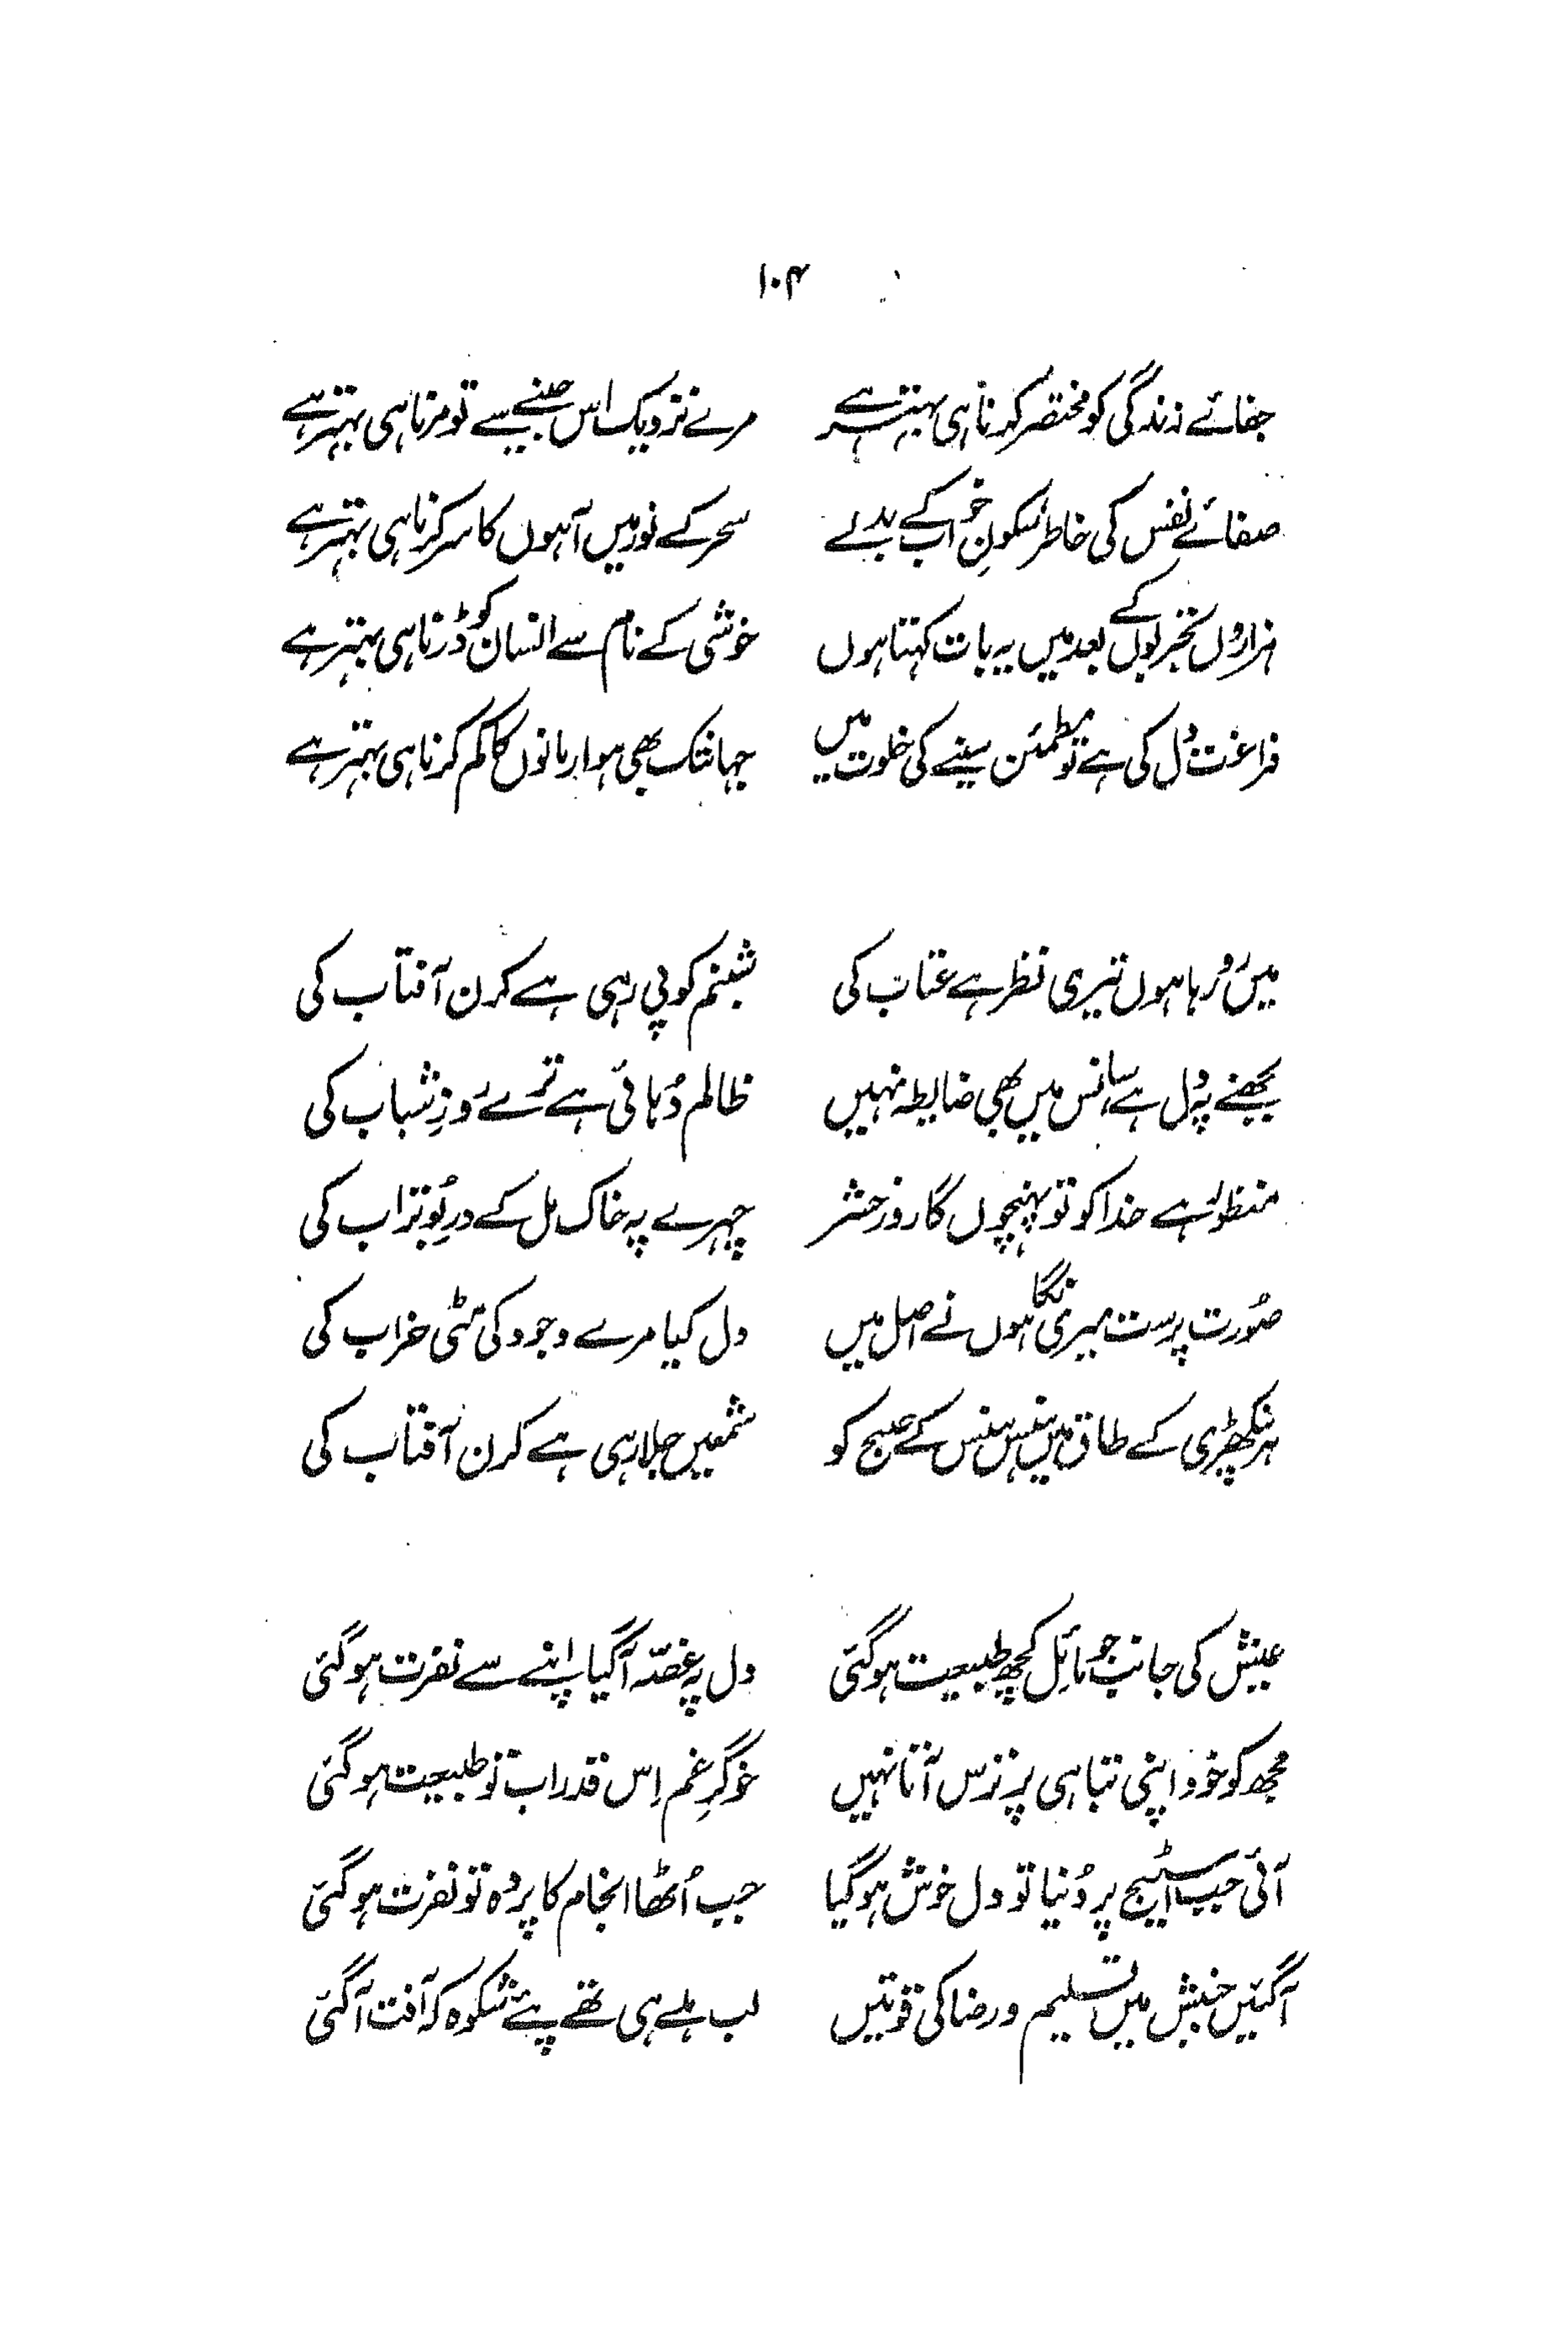 ۱۰۴
جفائے زندگی کو مختصر کرنا ہی بہتر ہے مرے نزدیک اس جینے سے تو مرنا ہی بہتر ہے
صفائے نفس کی خاطر سکونِ خواب کے بدلے سحر کے نور میں آہوں کا سر کرنا ہی بہتر ہے
ہزاروں تجربوں کے بعد میں یہ بات کہتا ہوں خوشی کے نام سے انسان کو ڈرنا ہی بہتر ہے
فراغت دل کی ہے تو مطمئن سینے کی خلوت میں جہانتک بھی ہو ارمانوں کا کم کرنا ہی بہتر ہے
میں رو رہا ہوں تیری نظر ہے عتاب کی شبنم کو پی رہی ہے کرن آفتاب کی
بجھنے پہ دل ہے سانس میں بھی ضابطہ نہیں ظالم دُہائی ہے ترے زورِ شباب کی
منظور ہے خدا کو تو پہنچوں گا روزِ حشر چہرے پہ خاک مل کے درِ بُوتراب کی
صُورت پرست میری نگاہوں نے اصل میں دل کیا مرے وجود کی مٹی خراب کی
ہر پنکھڑی کے طاق میں ہنس ہنس کے صبح کو شمعیں جلا رہی ہے کرن آفتاب کی
عیش کی جانب جو مائل کچھ طبیعت ہو گئی دل پہ غصّہ آ گیا اپنے سے نفرت ہو گئی
مجھ کو خود اپنی تباہی پر ترس آتا نہیں خوگرِ غم اِس قدر اب تو طبیعت ہو گئی
آئی جب اسٹیج پر دُنیا تو دل خوش ہو گیا جب اُٹھا انجام کا پردہ تو نفرت ہو گئی
آ گئیں جنبش میں تسلیم و رضا کی قوتیں لب ہلے ہی تھے پئے شکوہ کہ آفت آ گئی